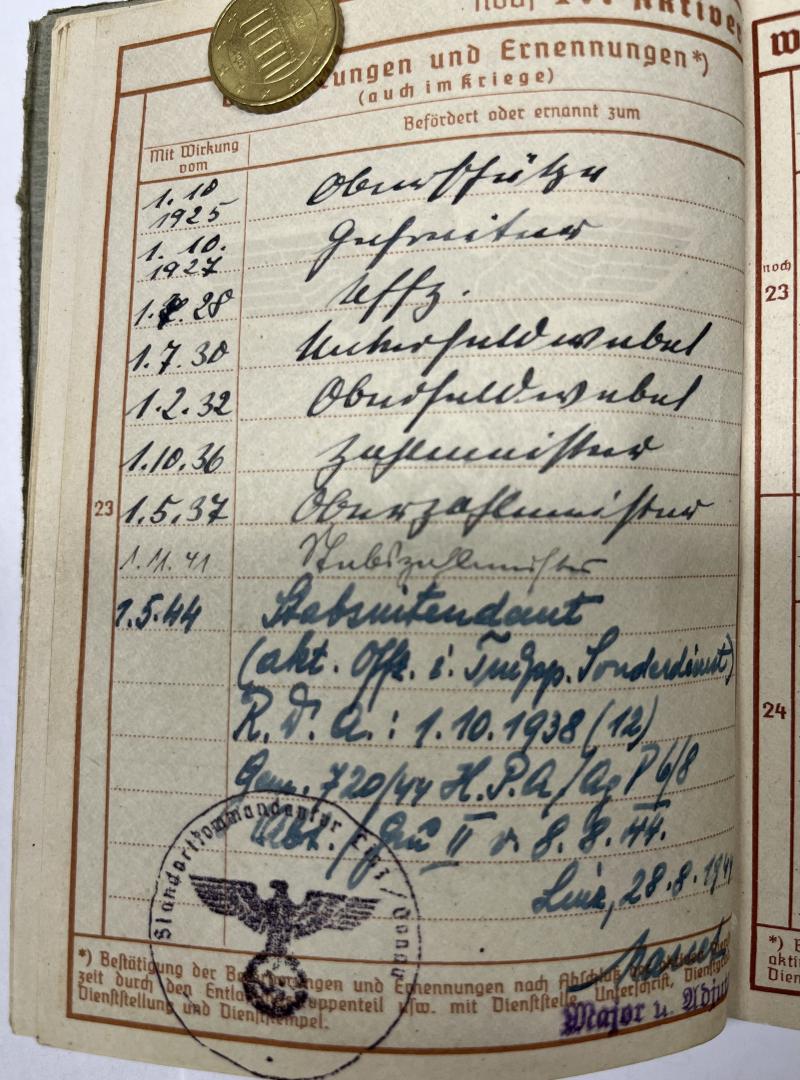 Noch Zur Aktiven
ungen und Ernennungen*)
(auch im Kriege)
Mit Wirkung vom
Befördert oder ernannt zum
1. 10 1925 Oberschütze
1. 10. 1927 Gefreiter
1. 28 Uffz.
1. 7. 30 Unterfeldwebel
1. 2. 32 Oberfeldwebel
1. 10. 36 Zahlmeister
23 1. 5. 37 Oberzahlmeister
1. 11. 41 Stabszahlmeister
1. 5. 44 Stabsintendant
(akt. Offz. i. Truppp. Sonderdienst)
R. D. A.: 1. 10. 1938 (12)
Gem. 720/44 H. P. A/Ag P 6/8
Abt. II v. 8. 8. 44.
Linz, 28. 8. 1944
Standortkommandantur Linz/Donau
*) Bestätigung der Beförderungen und Ernennungen nach Abschluß
zeit durch den Entlassungstruppenteil usw. mit Dienststelle, Unterschrift, Dienstgrad,
Dienststellung und Dienststempel.
Major u. Adju
W
noch
23
24
*) B
akti
Dien